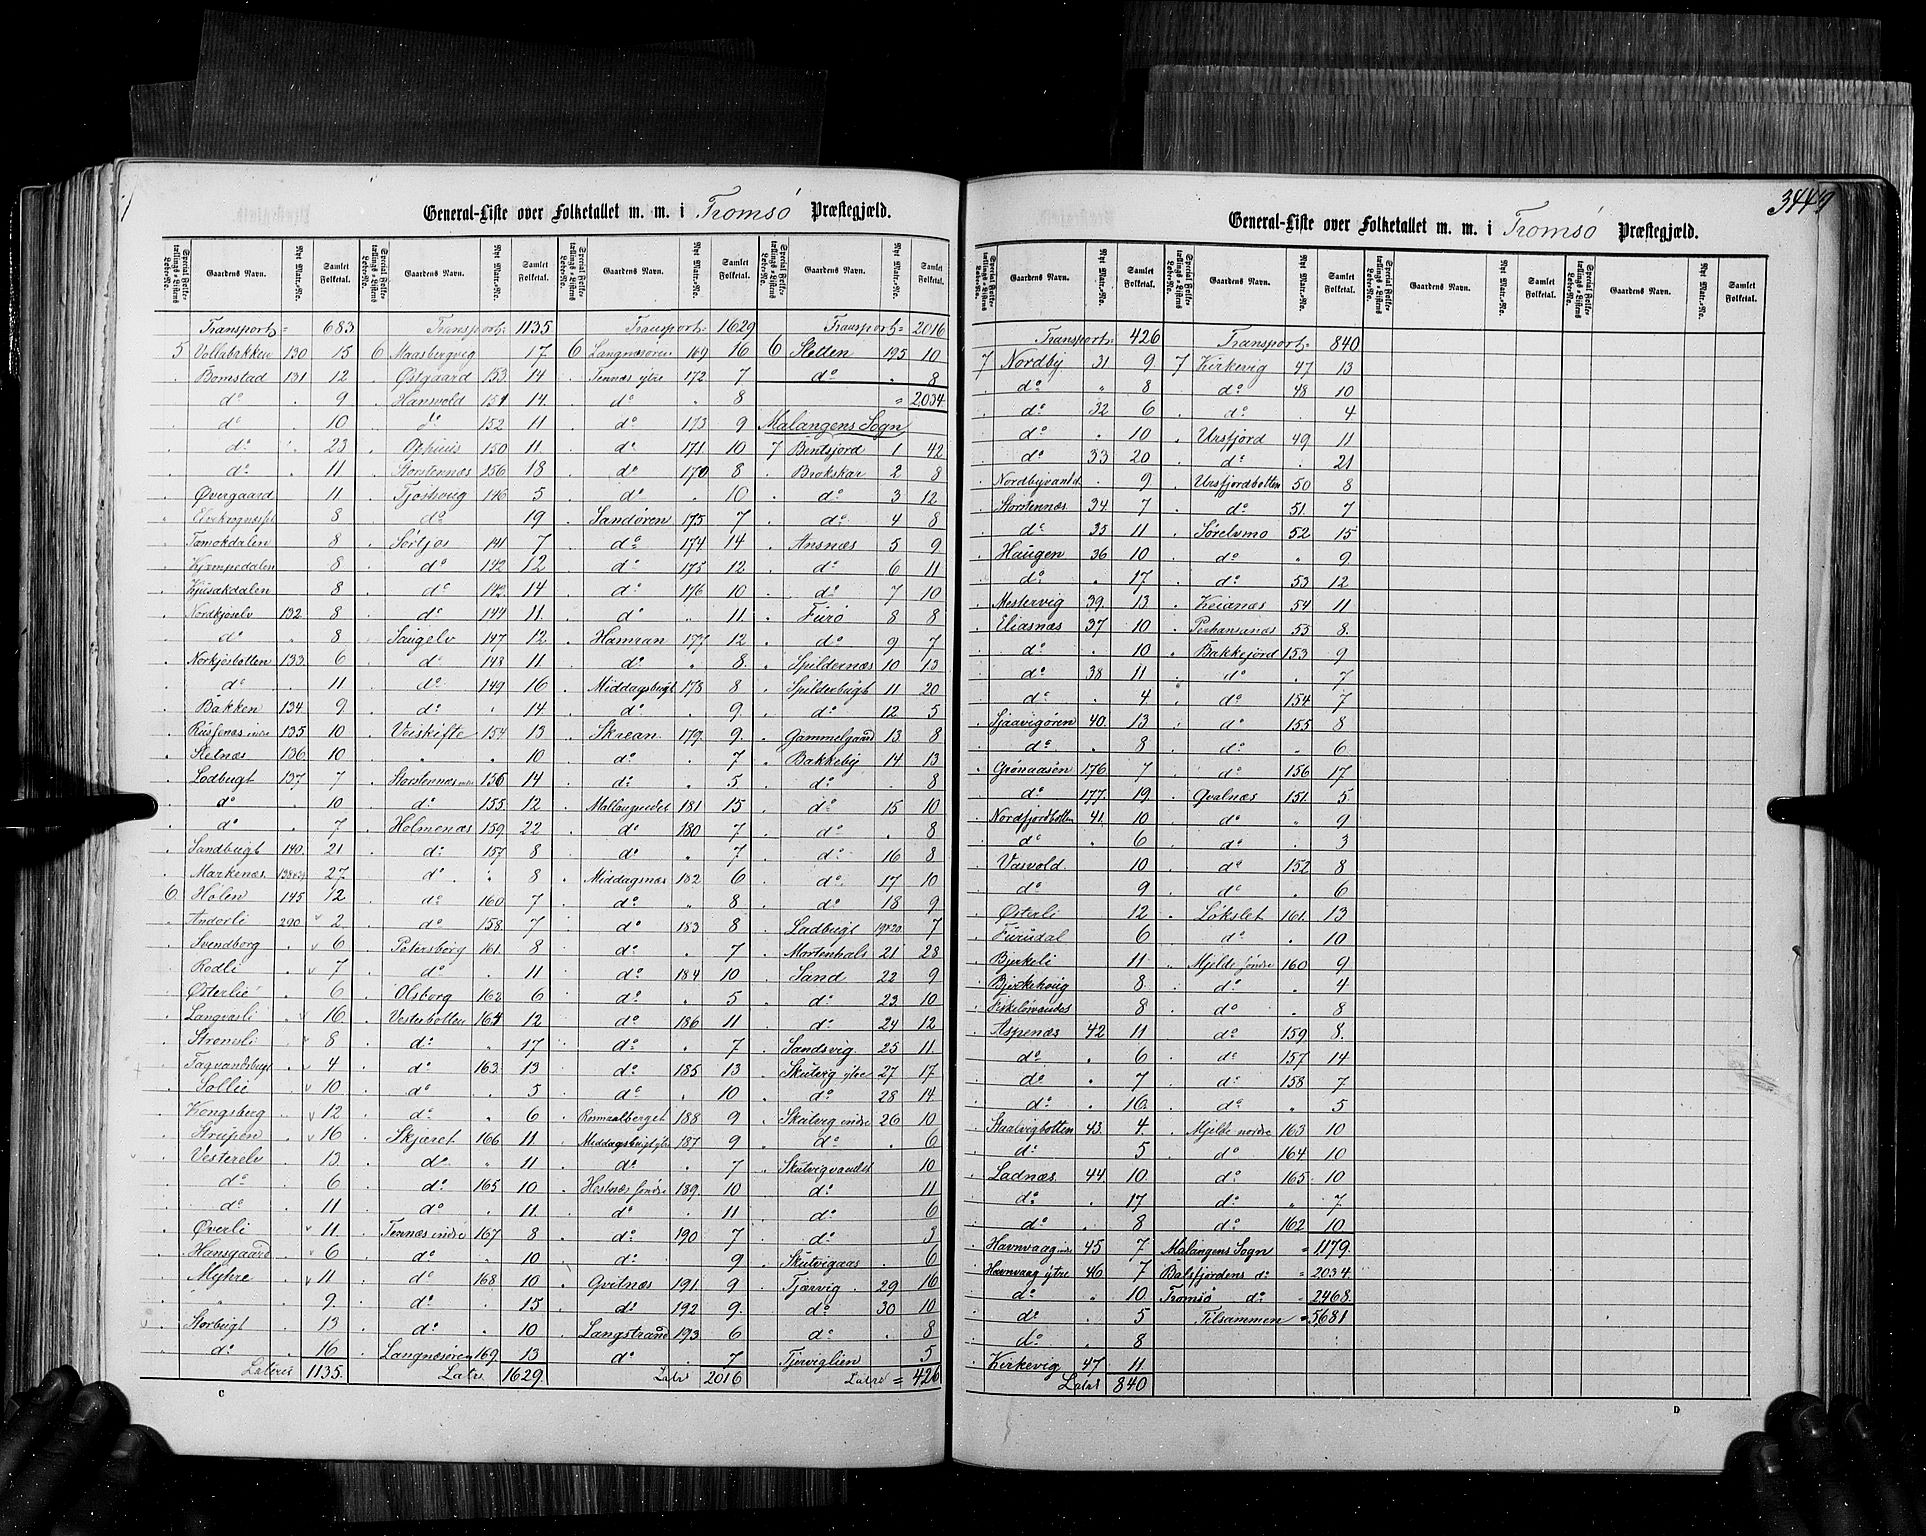 General-Liste over Folketallet m. m. i Tromsø Præstegjæld.
Special Folketællings-Listens Løbe-No. Gaardens Navn. Nyt Matr.-No. Samlet Folketal.
Transport = 683
5 Vollabakken 130 15
" Bomstad 131 12
" do " 9
" do " 10
" do " 23
" do " 11
" Øvergaard 11
" 8
" Tamokdalen 8
" Kjempedalen 8
" 8
" Nordkjoselv 132 8
" do " 8
" Norkjosbotten 133 6
" do " 11
" Bakken 134 9
" indre 135 10
" Sletnæs 136 10
" Lodbugt 137 7
" do 10
" do " 7
" Sandbugt 140 21
" Markenæs 27
6 Holen 145 12
" Anderli 290 v 2
" Svendborg " v 6
" Rodli " v 7
" Østerlie " 6
" Langvasli " v 16
" " v 8
" Fagvandsbugt " v 4
" Sollie " v 10
" Kongsberg " v 12
" Strupen " v 16
" Vesterelv " 13
" do " 6
" do " 11
" Øverli v 11
" Hansgaard " v 6
" Myhre v 11
" " " 9
" Storbugt 13
" do " 16
Lateris 1135
Transport = 1135
6 Maasbergvig 17
" Østgaard 153 14
" Hamvold 151 14
" do 152 11
" Ophuus 150 11
" Storstennæs 156 18
" Tjoshoug 146 5
" do 19
" 141 7
" do 142 12
" do 14
" do 144 11
" Saugelv 147 12
" do 148 11
" do 149 16
" do " 14
" Veiskifte 154 13
" " " 10
" Storstennæs 14
" do 155 12
" Holmenæs 159 22
" do 157 8
" do " 8
" do 160 7
" do 158 7
" Petersborg 161 8
" do " 11
" Olsborg 162 6
" Vesterbotten 164 12
" do " 17
" do 163 13
" do " 5
" do " 6
" Skjæret 166 11
" do " 11
" do 165 10
" do " 11
" Tennæs indre 167 8
" do " 10
" do 168 10
" do " 15
" do " 10
" Langnæsøren 169 13
Latus 1629
Transport = 1629
6 Langnæsøren 169 16
" Tennæs ytre 172 7
" do " 8
" do 173 9
" do 171 10
" do 170 8
" do " 10
" Sandøren 175 7
" do 174 14
" do 175 12
" do 176 10
" do " 11
" Hamran 177 12
" do " 8
" Middagsbugt 178 8
" do " 9
" Skrean 179 9
" do " 7
" do " 5
" 181 15
" do 180 7
" do " 7
" Middagsnæs 182 6
" do " 8
" do 183 8
" do " 7
" do 184 10
" do " 5
" do 186 11
" do " 7
" do 185 13
" do " 10
" 188 9
" Middagsbugt ytre 187 9
" do " 7
" Hestnæs søndre 189 10
" do " 11
" do 190 7
" do " 9
" Qvitnæs 191 9
" do 192 9
" Langstrand 193 6
" do " 7
Latus 2016
Transport = 2016
6 Sletten 195 10
do " 8
= 2034
Malangens Sogn
7 Bentsjord 1 42
" Brokskar 2 8
" do 3 12
" do 4 8
" Ansnæs 5 9
" do 6 11
" do 7 10
" Furø 8 8
" do 9 7
" Spildernæs 10 13
" Spilderbugt 11 20
" do 12 5
" Gammelgaard 13 8
" Bakkeby 14 13
" do " 8
" do 15 10
" do " 8
" do 16 8
" do 17 10
" do 18 9
" Ladbugt 19&20 7
" Martenhals 21 28
" Sand 22 9
" do 23 10
" do 24 12
" Sandsvig 25 11
" Skutvig ytre 27 17
" do 28 14
" Skutvig indre 26 10
" do " 6
" Skutvigvandet 10
" do 11
" do 6
" do 3
" Skutvigaas " 6
" Tjærvig 29 16
" do 30 10
" do " 8
" Tjerviglien 5
Latus = 426
3449
General-Liste over Folketallet m. m. i Tromsø Præstegjæld.
Special Folketællings-Listens Løbe-No. Gaardens Navn. Nyt Matr.-No. Samlet Folketal.
Transport 426
7 Nordby 31 9
" do " 8
" do 32 6
" do " 10
" do 33 20
" Nordbyvand " 9
" Storstennæs 34 7
" do 35 11
" Haugen 36 10
" do " 17
" Mestervig 39 13
" Eliasnæs 37 10
" do " 10
" do 38 11
" do " 4
" Sjaavigøren 40 13
" do " 8
" Grønaasen 176 7
" do 177 19
" Nordfjordbotten 41 10
" do " 6
" Vasvold 10
" do 9
" Østerli 12
" Furudal 6
" Bjerkeli 11
" Bjerkehoug 8
" 8
" Aspenæs 42 11
" do " 6
" do " 7
" do " 16
" Staalvigbotten 43 4
" do 5
" Ladnæs 44 10
" do " 17
" do " 8
" Havnvaag indre 45 7
" Havnvaag ytre 46 7
" do " 10
" do 5
" do " 8
" Kirkevig 47 11
Latus 840
Transport = 840
7 Kirkevig 47 13
" do 48 10
" do " 4
" Ursfjord 49 11
" do " 21
" Ursfjordbotten 50 8
" do 51 7
" Sørelvmo 52 15
" do " 9
" do 53 12
" Keianæs 54 11
" Perhansanæs 55 8
" Bakkejord 153 9
" do " 7
" do 154 7
" do 155 8
" do " 6
" do 156 17
" Qvalnæs 151 5
" do " 9
" do " 3
" do 152 8
" do " 6
" Løkslet 161 13
" do " 10
" Mjelde søndre 160 9
" do " 4
" do " 8
" do 159 8
" do 157 14
" do 158 7
" do " 5
" Mjelde nordre 163 10
" do 164 10
" do 165 10
" do " 7
" do 162 10
Malangens Sogn = 1179
Balsfjordens do = 2034
Tromsø do " 2468
Tilsammen = 5681
C
D